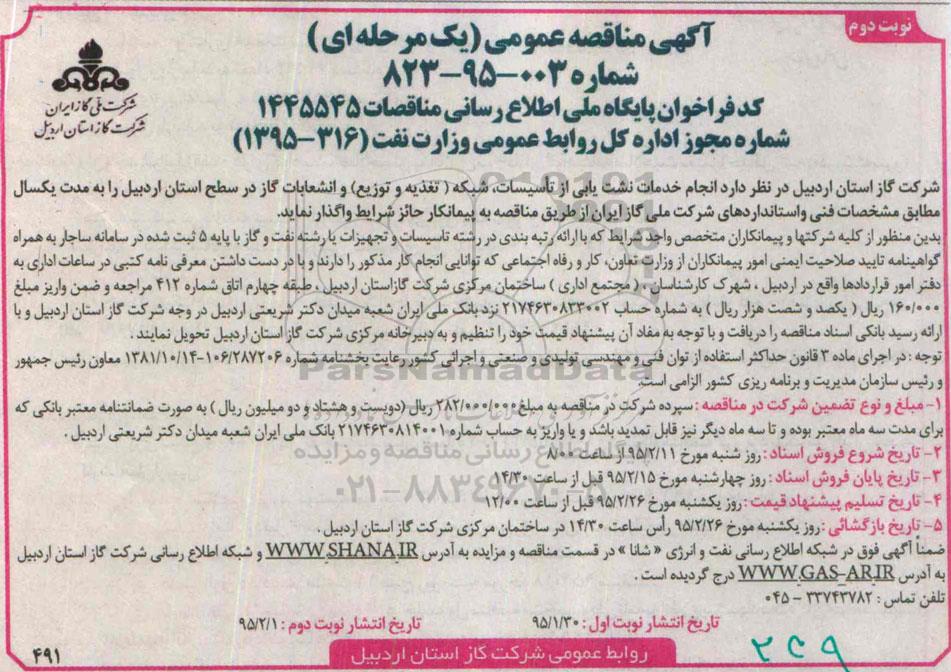 نوبت دوم
آگهی مناقصه عمومی (یک مرحله ای)
شماره ۰۰۳-۹۵-۸۲۳
کد فراخوان پایگاه ملی اطلاع رسانی مناقصات ۱۴۴۵۵۴۵
شماره مجوز اداره کل روابط عمومی وزارت نفت (۳۱۶-۱۳۹۵)
شرکت ملی گاز ایران
شرکت گاز استان اردبیل
شرکت گاز استان اردبیل در نظر دارد انجام خدمات نشت یابی از تأسیسات، شبکه ( تغذیه و توزیع) و انشعابات گاز در سطح استان اردبیل را به مدت یکسال
مطابق مشخصات فنی واستانداردهای شرکت ملی گاز ایران از طریق مناقصه به پیمانکار حائز شرایط واگذار نماید.
بدین منظور از کلیه شرکتها و پیمانکاران متخصص واجد شرایط که با ارائه رتبه بندی در رشته تاسیسات و تجهیزات یا رشته نفت و گاز با پایه ۵ ثبت شده در سامانه ساجار به همراه
گواهینامه تایید صلاحیت ایمنی امور پیمانکاران از وزارت تعاون، کار و رفاه اجتماعی که توانایی انجام کار مذکور را دارند و با در دست داشتن معرفی نامه کتبی در ساعات اداری به
دفتر امور قراردادها واقع در اردبیل ، شهرک کارشناسان ( مجتمع اداری ) ساختمان مرکزی شرکت گازاستان اردبیل ، طبقه چهارم اتاق شماره ۴۱۲ مراجعه و ضمن واریز مبلغ
۱۶۰/۰۰۰ ریال ( یکصد و شصت هزار ریال ) به شماره حساب ۲۱۷۴۶۳۰۸۳۳۰۰۲ نزد بانک ملی ایران شعبه میدان دکتر شریعتی اردبیل در وجه شرکت گاز استان اردبیل و با
ارائه رسید بانکی اسناد مناقصه را دریافت و با توجه به مفاد آن پیشنهاد قیمت خود را تنظیم و به دبیرخانه مرکزی شرکت گاز استان اردبیل تحویل نمایند .
توجه : در اجرای ماده ۳ قانون حداکثر استفاده از توان فنی و مهندسی تولیدی و صنعتی و اجرائی کشور رعایت بخشنامه شماره ۱۰۶/۲۸۷۲۰۶-۱۳۸۱/۱۰/۱۴ معاون رئیس جمهور
و رئیس سازمان مدیریت و برنامه ریزی کشور الزامی است.
۱- مبلغ و نوع تضمین شرکت در مناقصه : سپرده شرکت در مناقصه به مبلغ ۲۸۲/۰۰۰/۰۰۰ ریال (دویست و هشتاد و دو میلیون ریال ) به صورت ضمانتنامه معتبر بانکی که
برای مدت سه ماه معتبر بوده و تا سه ماه دیگر نیز قابل تمدید باشد و یا واریز به حساب شماره ۲۱۷۴۶۳۰۸۱۴۰۰۱ بانک ملی ایران شعبه میدان دکتر شریعتی اردبیل .
۲- تاریخ شروع فروش اسناد : روز شنبه مورخ ۹۵/۲/۱۱ از ساعت ۸/۰۰
۳- تاریخ پایان فروش اسناد : روز چهارشنبه مورخ ۹۵/۲/۱۵ قبل از ساعت ۱۴/۳۰
۴- تاریخ تسلیم پیشنهاد قیمت : روز یکشنبه مورخ ۹۵/۲/۲۶ قبل از ساعت ۱۲/۰۰
۵- تاریخ بازگشائی : روز یکشنبه مورخ ۹۵/۲/۲۶ رأس ساعت ۱۴/۳۰ در ساختمان مرکزی شرکت گاز استان اردبیل .
ضمناً آگهی فوق در شبکه اطلاع رسانی نفت و انرژی « شانا » در قسمت مناقصه و مزایده به آدرس WWW.SHANA.IR و شبکه اطلاع رسانی شرکت گاز استان اردبیل
به آدرس WWW.GAS-AR.IR درج گردیده است .
تلفن تماس : ۳۳۷۴۳۷۸۲ - ۰۴۵
تاریخ انتشار نوبت اول : ۹۵/۱/۳۰ تاریخ انتشار نوبت دوم : ۹۵/۲/۱
روابط عمومی شرکت گاز استان اردبیل
۴۹۱
ParsNamadData
پایگاه اطلاع رسانی مناقصه و مزایده